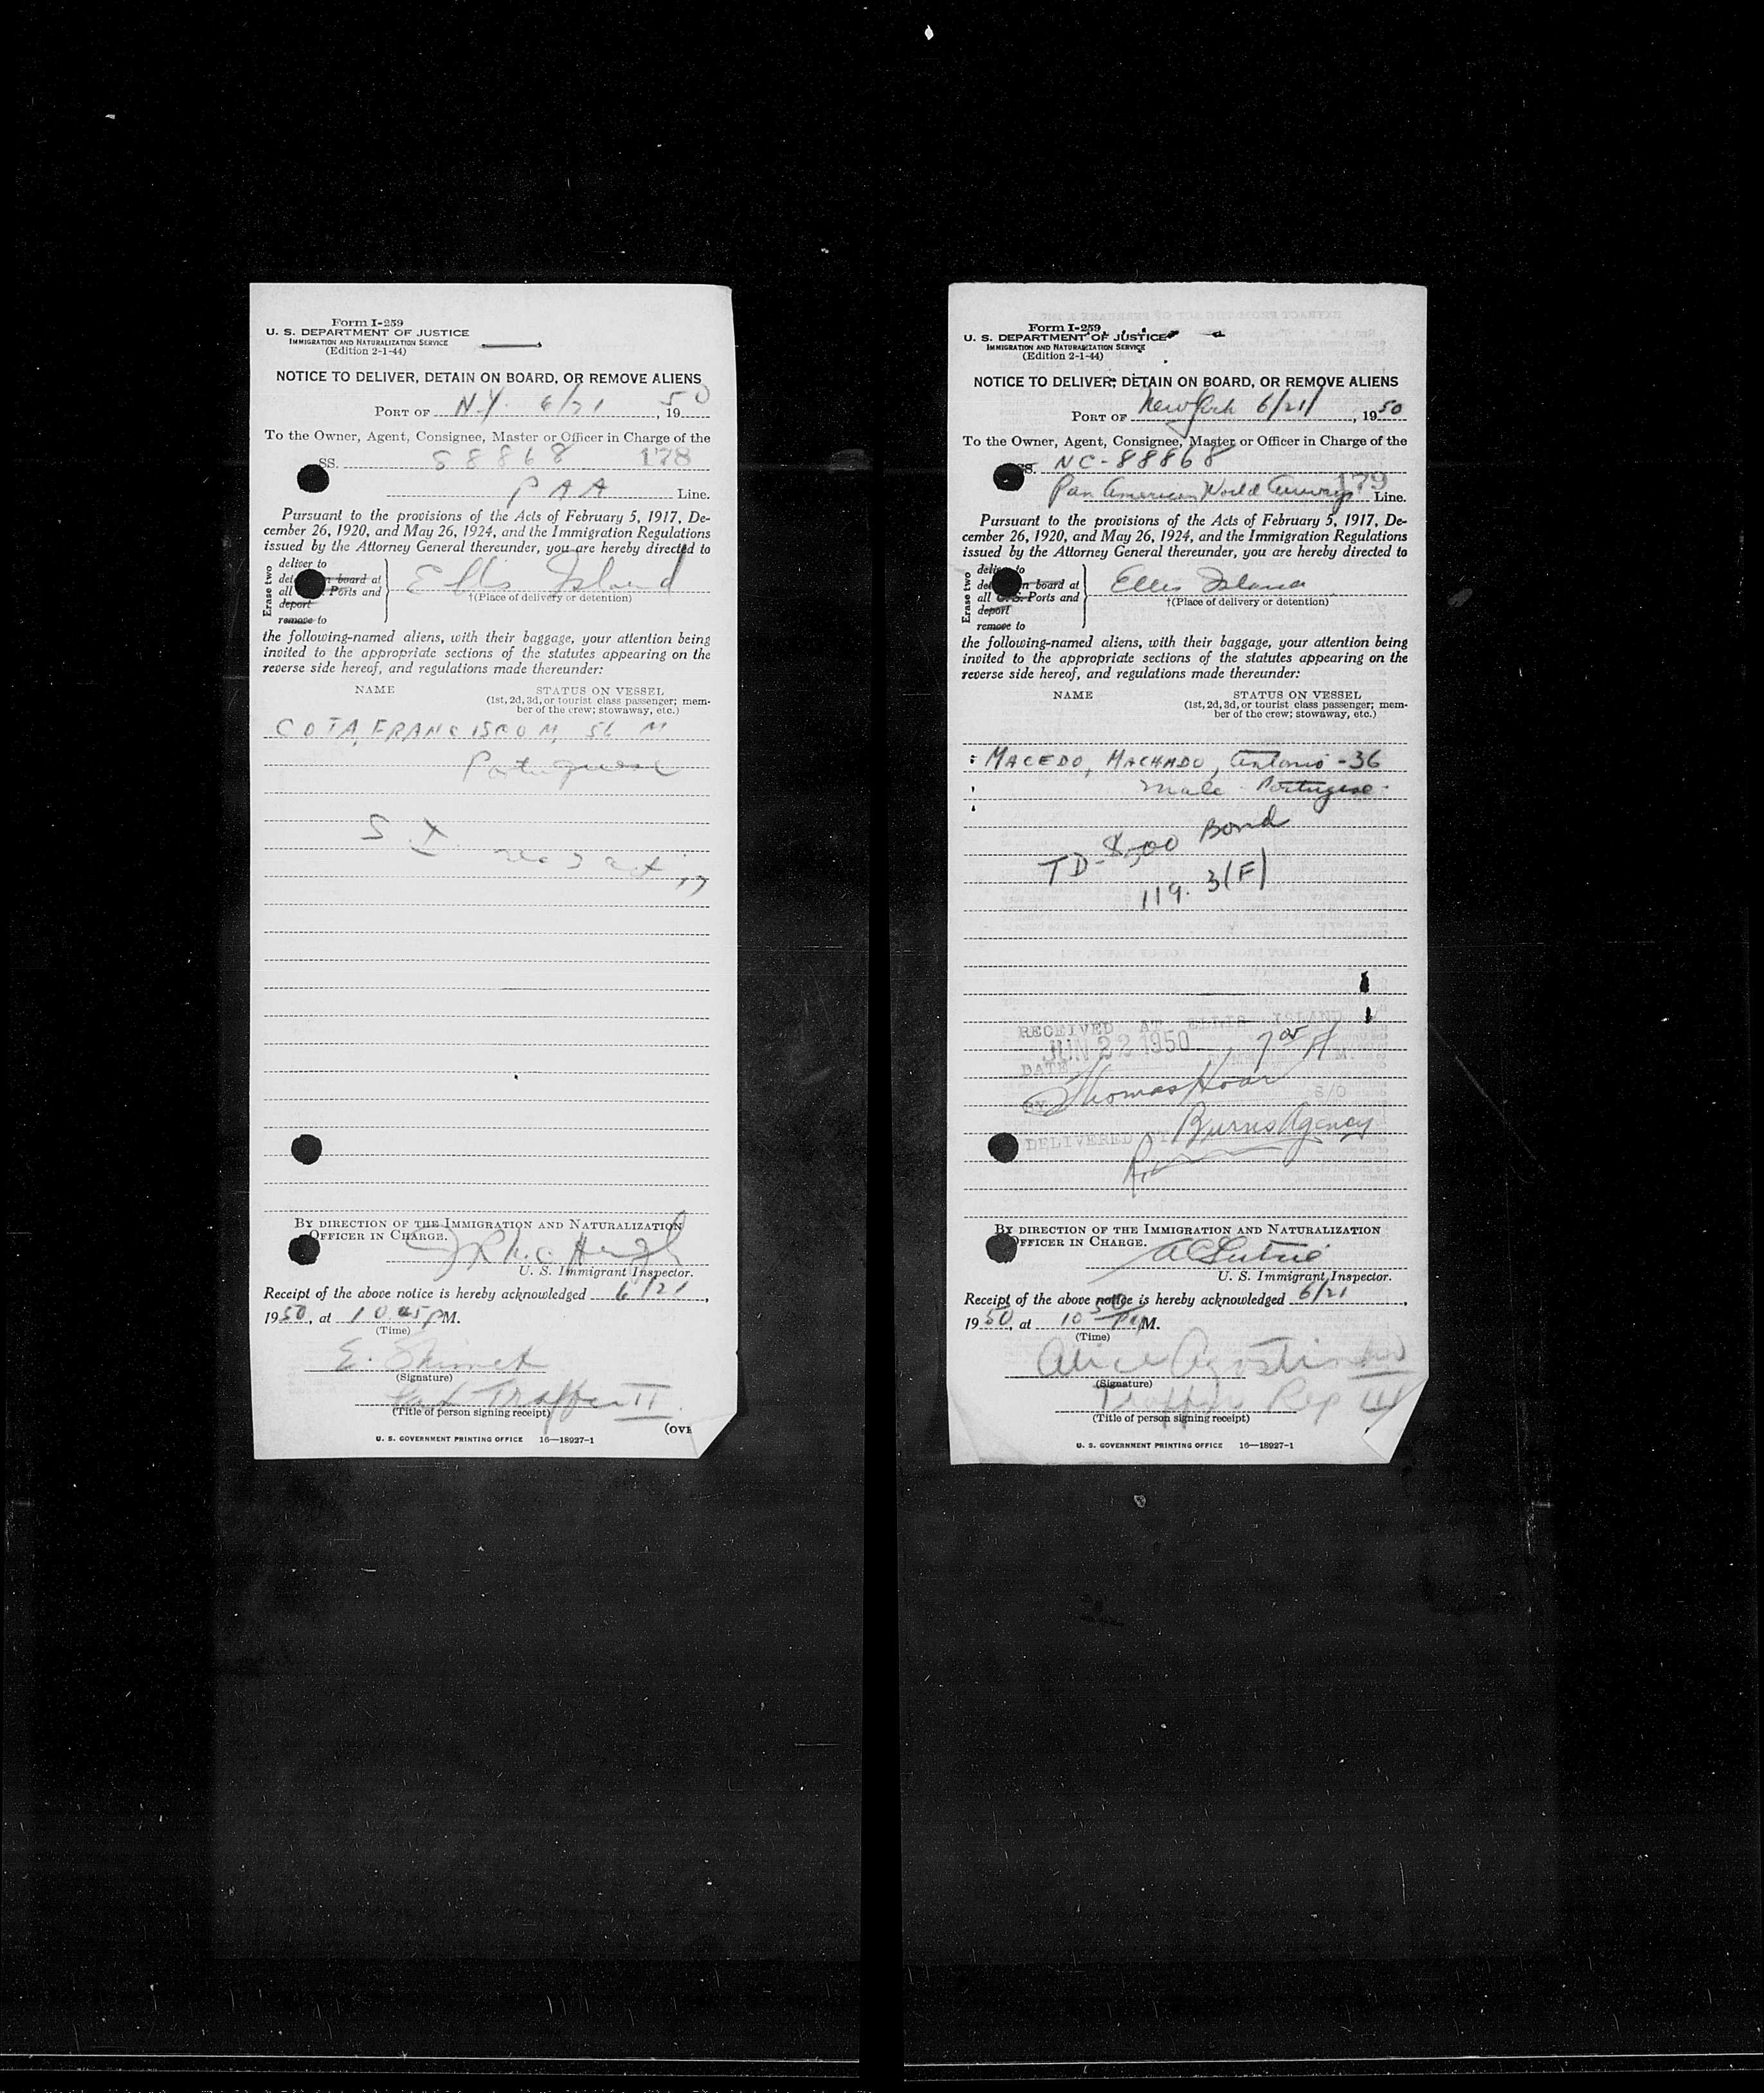 Form I-259
U. S. DEPARTMENT OF JUSTICE
IMMIGRATION AND NATURALIZATION SERVICE
(Edition 2-1-44)
NOTICE TO DELIVER, DETAIN ON BOARD, OR REMOVE ALIENS
PORT OF N.Y. 6/21, 1950
To the Owner, Agent, Consignee, Master or Officer in Charge of the
SS. 88868 178
PAA Line.
Pursuant to the provisions of the Acts of February 5, 1917, De-
cember 26, 1920, and May 26, 1924, and the Immigration Regulations
issued by the Attorney General thereunder, you are hereby directed to
Erase two
deliver to
board at
all Ports and
deport
remove to
Ellis Island
†(Place of delivery or detention)
the following-named aliens, with their baggage, your attention being
invited to the appropriate sections of the statutes appearing on the
reverse side hereof, and regulations made thereunder:
NAME STATUS ON VESSEL
(1st, 2d, 3d, or tourist class passenger; mem-
ber of the crew; stowaway, etc.)
COTA, FRANCISCO M, 56 M
Portuguese
S I
BY DIRECTION OF THE IMMIGRATION AND NATURALIZATION
OFFICER IN CHARGE.
U. S. Immigrant Inspector.
Receipt of the above notice is hereby acknowledged 6/21,
1950, at 10 45 PM.
(Time)
E.
(Signature)
II
(Title of person signing receipt)
(OVE
U. S. GOVERNMENT PRINTING OFFICE 16—18927-1
Form I-259
U. S. DEPARTMENT OF JUSTICE
IMMIGRATION AND NATURALIZATION SERVICE
(Edition 2-1-44)
NOTICE TO DELIVER, DETAIN ON BOARD, OR REMOVE ALIENS
PORT OF New York 6/21/, 1950
To the Owner, Agent, Consignee, Master or Officer in Charge of the
SS. NC-88868
Pan American World Airways 179 Line.
Pursuant to the provisions of the Acts of February 5, 1917, De-
cember 26, 1920, and May 26, 1924, and the Immigration Regulations
issued by the Attorney General thereunder, you are hereby directed to
Erase two
deliver to
board at
all U.S. Ports and
deport
remove to
Ellis Island
†(Place of delivery or detention)
the following-named aliens, with their baggage, your attention being
invited to the appropriate sections of the statutes appearing on the
reverse side hereof, and regulations made thereunder:
NAME STATUS ON VESSEL
(1st, 2d, 3d, or tourist class passenger; mem-
ber of the crew; stowaway, etc.)
MACEDO, MACHADO, Antonio - 36
male - Portugese -
TD - 8,00 Bond
119. 3(F)
RECEIVED AT ELLIS ISLAND
JUN 22 1950
DATE M.
BY Thomas Hoar S/O
DELIVERED Burns Agency
BY DIRECTION OF THE IMMIGRATION AND NATURALIZATION
OFFICER IN CHARGE.
U. S. Immigrant Inspector.
Receipt of the above notice is hereby acknowledged 6/21,
1950, at 10 50 PM.
(Time)
Alice Agostinho
(Signature)
Traffic Rep III
(Title of person signing receipt)
U. S. GOVERNMENT PRINTING OFFICE 16—18927-1